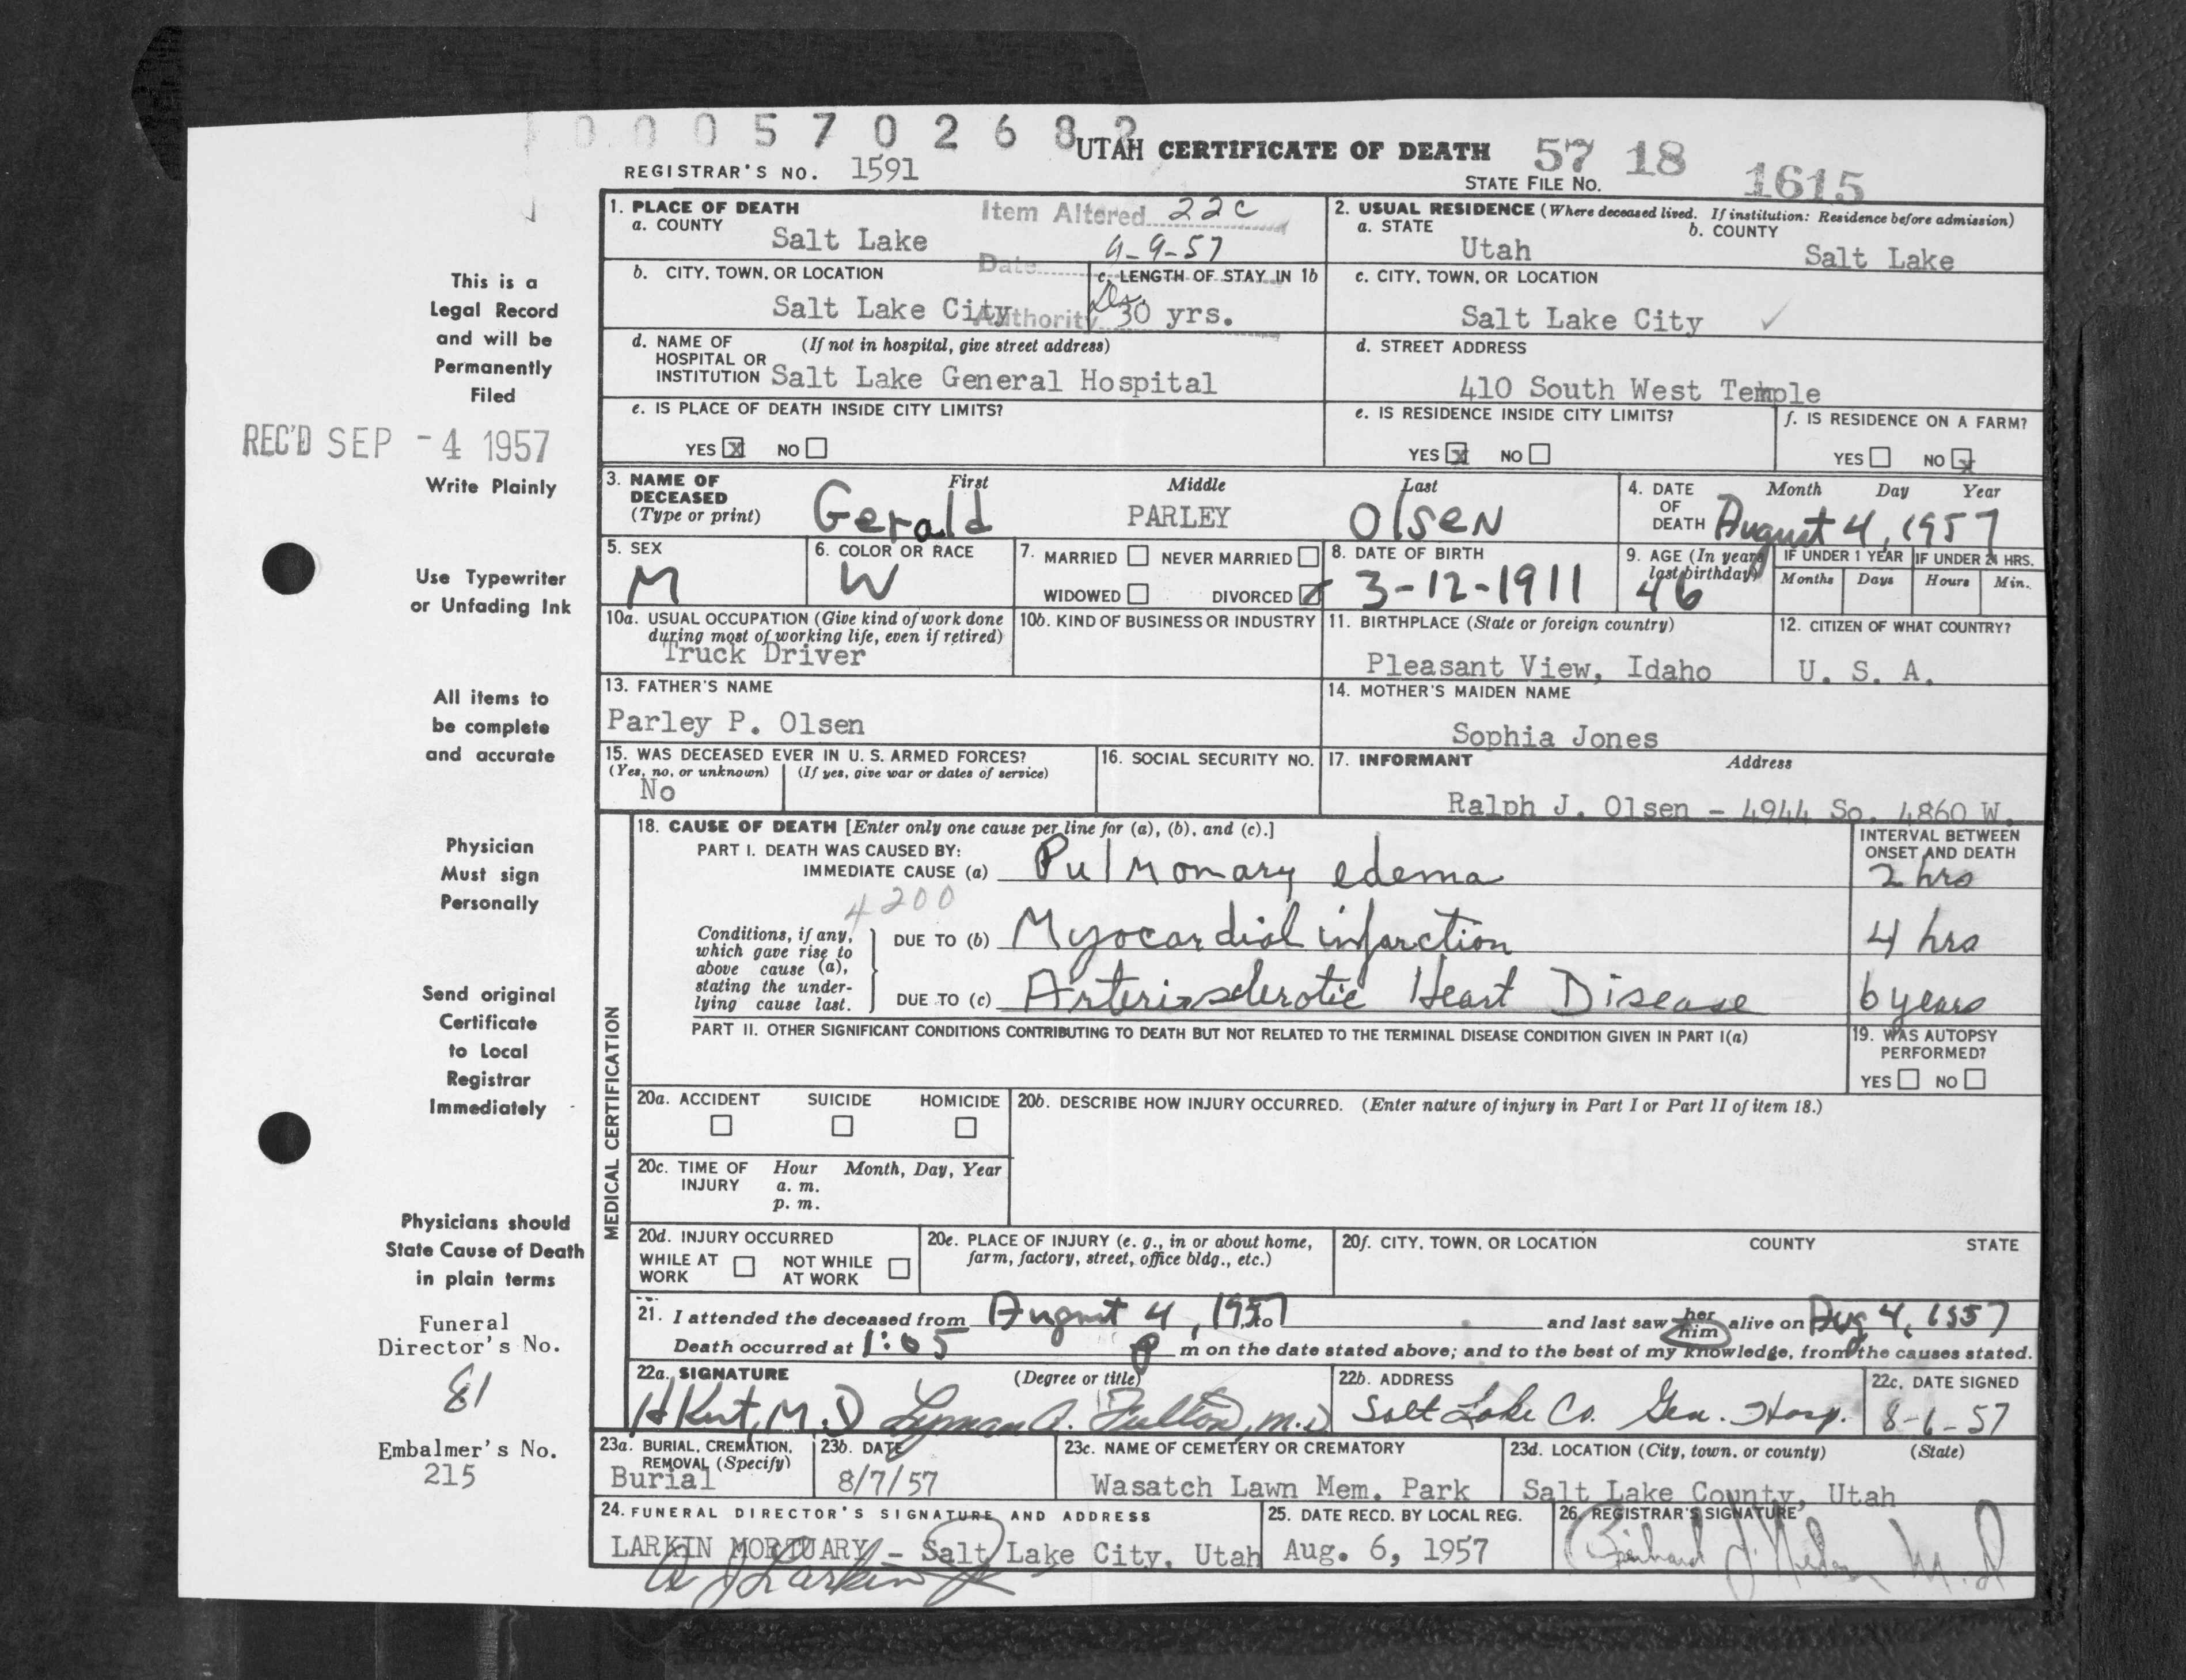 0005702682
UTAH CERTIFICATE OF DEATH 57 18 1615
REGISTRAR'S NO. 1591
STATE FILE NO.
1. PLACE OF DEATH
a. COUNTY
Salt Lake
Item Altered 22c
Date 9-9-57
Authority
2. USUAL RESIDENCE (Where deceased lived. If institution: Residence before admission)
a. STATE
Utah
b. COUNTY
Salt Lake
b. CITY, TOWN, OR LOCATION
Salt Lake City
c. LENGTH OF STAY IN 1b
30 yrs.
c. CITY, TOWN, OR LOCATION
Salt Lake City
d. NAME OF HOSPITAL OR INSTITUTION
(If not in hospital, give street address)
Salt Lake General Hospital
d. STREET ADDRESS
410 South West Temple
e. IS PLACE OF DEATH INSIDE CITY LIMITS?
YES x NO
e. IS RESIDENCE INSIDE CITY LIMITS?
YES x NO
f. IS RESIDENCE ON A FARM?
YES NO x
This is a
Legal Record
and will be
Permanently
Filed
REC'D SEP -4 1957
Write Plainly
Use Typewriter
or Unfading Ink
All items to
be complete
and accurate
Physician
Must sign
Personally
Send original
Certificate
to Local
Registrar
Immediately
Physicians should
State Cause of Death
in plain terms
Funeral
Director's No.
81
Embalmer's No.
215
3. NAME OF DECEASED
(Type or print)
First Middle Last
Gerald PARLEY Olsen
4. DATE OF DEATH
Month Day Year
August 4, 1957
5. SEX
M
6. COLOR OR RACE
W
7. MARRIED NEVER MARRIED
WIDOWED DIVORCED
8. DATE OF BIRTH
3-12-1911
9. AGE (In years last birthday)
46
IF UNDER 1 YEAR
Months Days
IF UNDER 24 HRS.
Hours Min.
10a. USUAL OCCUPATION (Give kind of work done during most of working life, even if retired)
Truck Driver
10b. KIND OF BUSINESS OR INDUSTRY
11. BIRTHPLACE (State or foreign country)
Pleasant View, Idaho
12. CITIZEN OF WHAT COUNTRY?
U. S. A.
13. FATHER'S NAME
Parley P. Olsen
14. MOTHER'S MAIDEN NAME
Sophia Jones
15. WAS DECEASED EVER IN U. S. ARMED FORCES?
(Yes, no, or unknown) (If yes, give war or dates of service)
No
16. SOCIAL SECURITY NO.
17. INFORMANT Address
Ralph J. Olsen - 4944 So. 4860 W.
MEDICAL CERTIFICATION
18. CAUSE OF DEATH [Enter only one cause per line for (a), (b), and (c).]
INTERVAL BETWEEN ONSET AND DEATH
PART I. DEATH WAS CAUSED BY:
IMMEDIATE CAUSE (a) Pulmonary edema 2 hrs
4200
Conditions, if any, which gave rise to above cause (a), stating the underlying cause last.
DUE TO (b) Myocardial infarction 4 hrs
DUE TO (c) Arteriosclerotic Heart Disease 6 years
PART II. OTHER SIGNIFICANT CONDITIONS CONTRIBUTING TO DEATH BUT NOT RELATED TO THE TERMINAL DISEASE CONDITION GIVEN IN PART I(a)
19. WAS AUTOPSY PERFORMED?
YES NO
20a. ACCIDENT SUICIDE HOMICIDE
20b. DESCRIBE HOW INJURY OCCURRED. (Enter nature of injury in Part I or Part II of item 18.)
20c. TIME OF INJURY
Hour Month, Day, Year
a. m.
p. m.
20d. INJURY OCCURRED
WHILE AT WORK NOT WHILE AT WORK
20e. PLACE OF INJURY (e. g., in or about home, farm, factory, street, office bldg., etc.)
20f. CITY, TOWN, OR LOCATION COUNTY STATE
21. I attended the deceased from August 4, 1957 to and last saw her him alive on Aug 4, 1957
Death occurred at 1:05 P m on the date stated above; and to the best of my knowledge, from the causes stated.
22a. SIGNATURE (Degree or title)
H Kent, M.D Lyman A. Fulton, M.D
22b. ADDRESS
Salt Lake Co. Gen. Hosp.
22c. DATE SIGNED
8-6-57
23a. BURIAL, CREMATION, REMOVAL (Specify)
Burial
23b. DATE
8/7/57
23c. NAME OF CEMETERY OR CREMATORY
Wasatch Lawn Mem. Park
23d. LOCATION (City, town, or county) (State)
Salt Lake County, Utah
24. FUNERAL DIRECTOR'S SIGNATURE AND ADDRESS
LARKIN MORTUARY - Salt Lake City, Utah
25. DATE RECD. BY LOCAL REG.
Aug. 6, 1957
26. REGISTRAR'S SIGNATURE
M. D